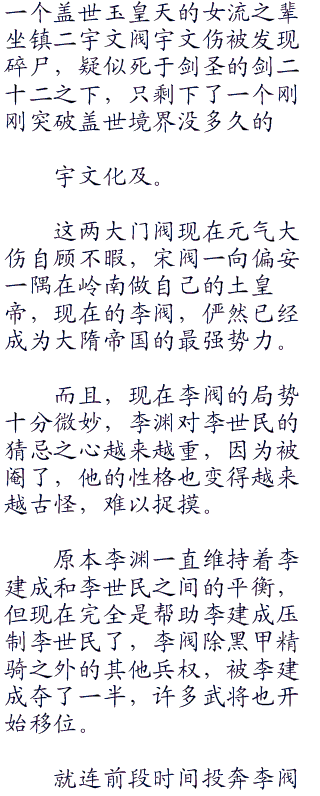 一个盖世玉皇天的女流之辈
坐镇二宇文阀宇文伤被发现
碎尸，疑似死于剑圣的剑二
十二之下，只剩下了一个刚
刚突破盖世境界没多久的
宇文化及。
这两大门阀现在元气大
伤自顾不暇，宋阀一向偏安
一隅在岭南做自己的土皇
帝，现在的李阀，俨然已经
成为大隋帝国的最强势力。
而且，现在李阀的局势
十分微妙，李渊对李世民的
猜忌之心越来越重，因为被
阉了，他的性格也变得越来
越古怪，难以捉摸。
原本李渊一直维持着李
建成和李世民之间的平衡，
但现在完全是帮助李建成压
制李世民了，李阀除黑甲精
骑之外的其他兵权，被李建
成夺了一半，许多武将也开
始移位。
就连前段时间投奔李阀